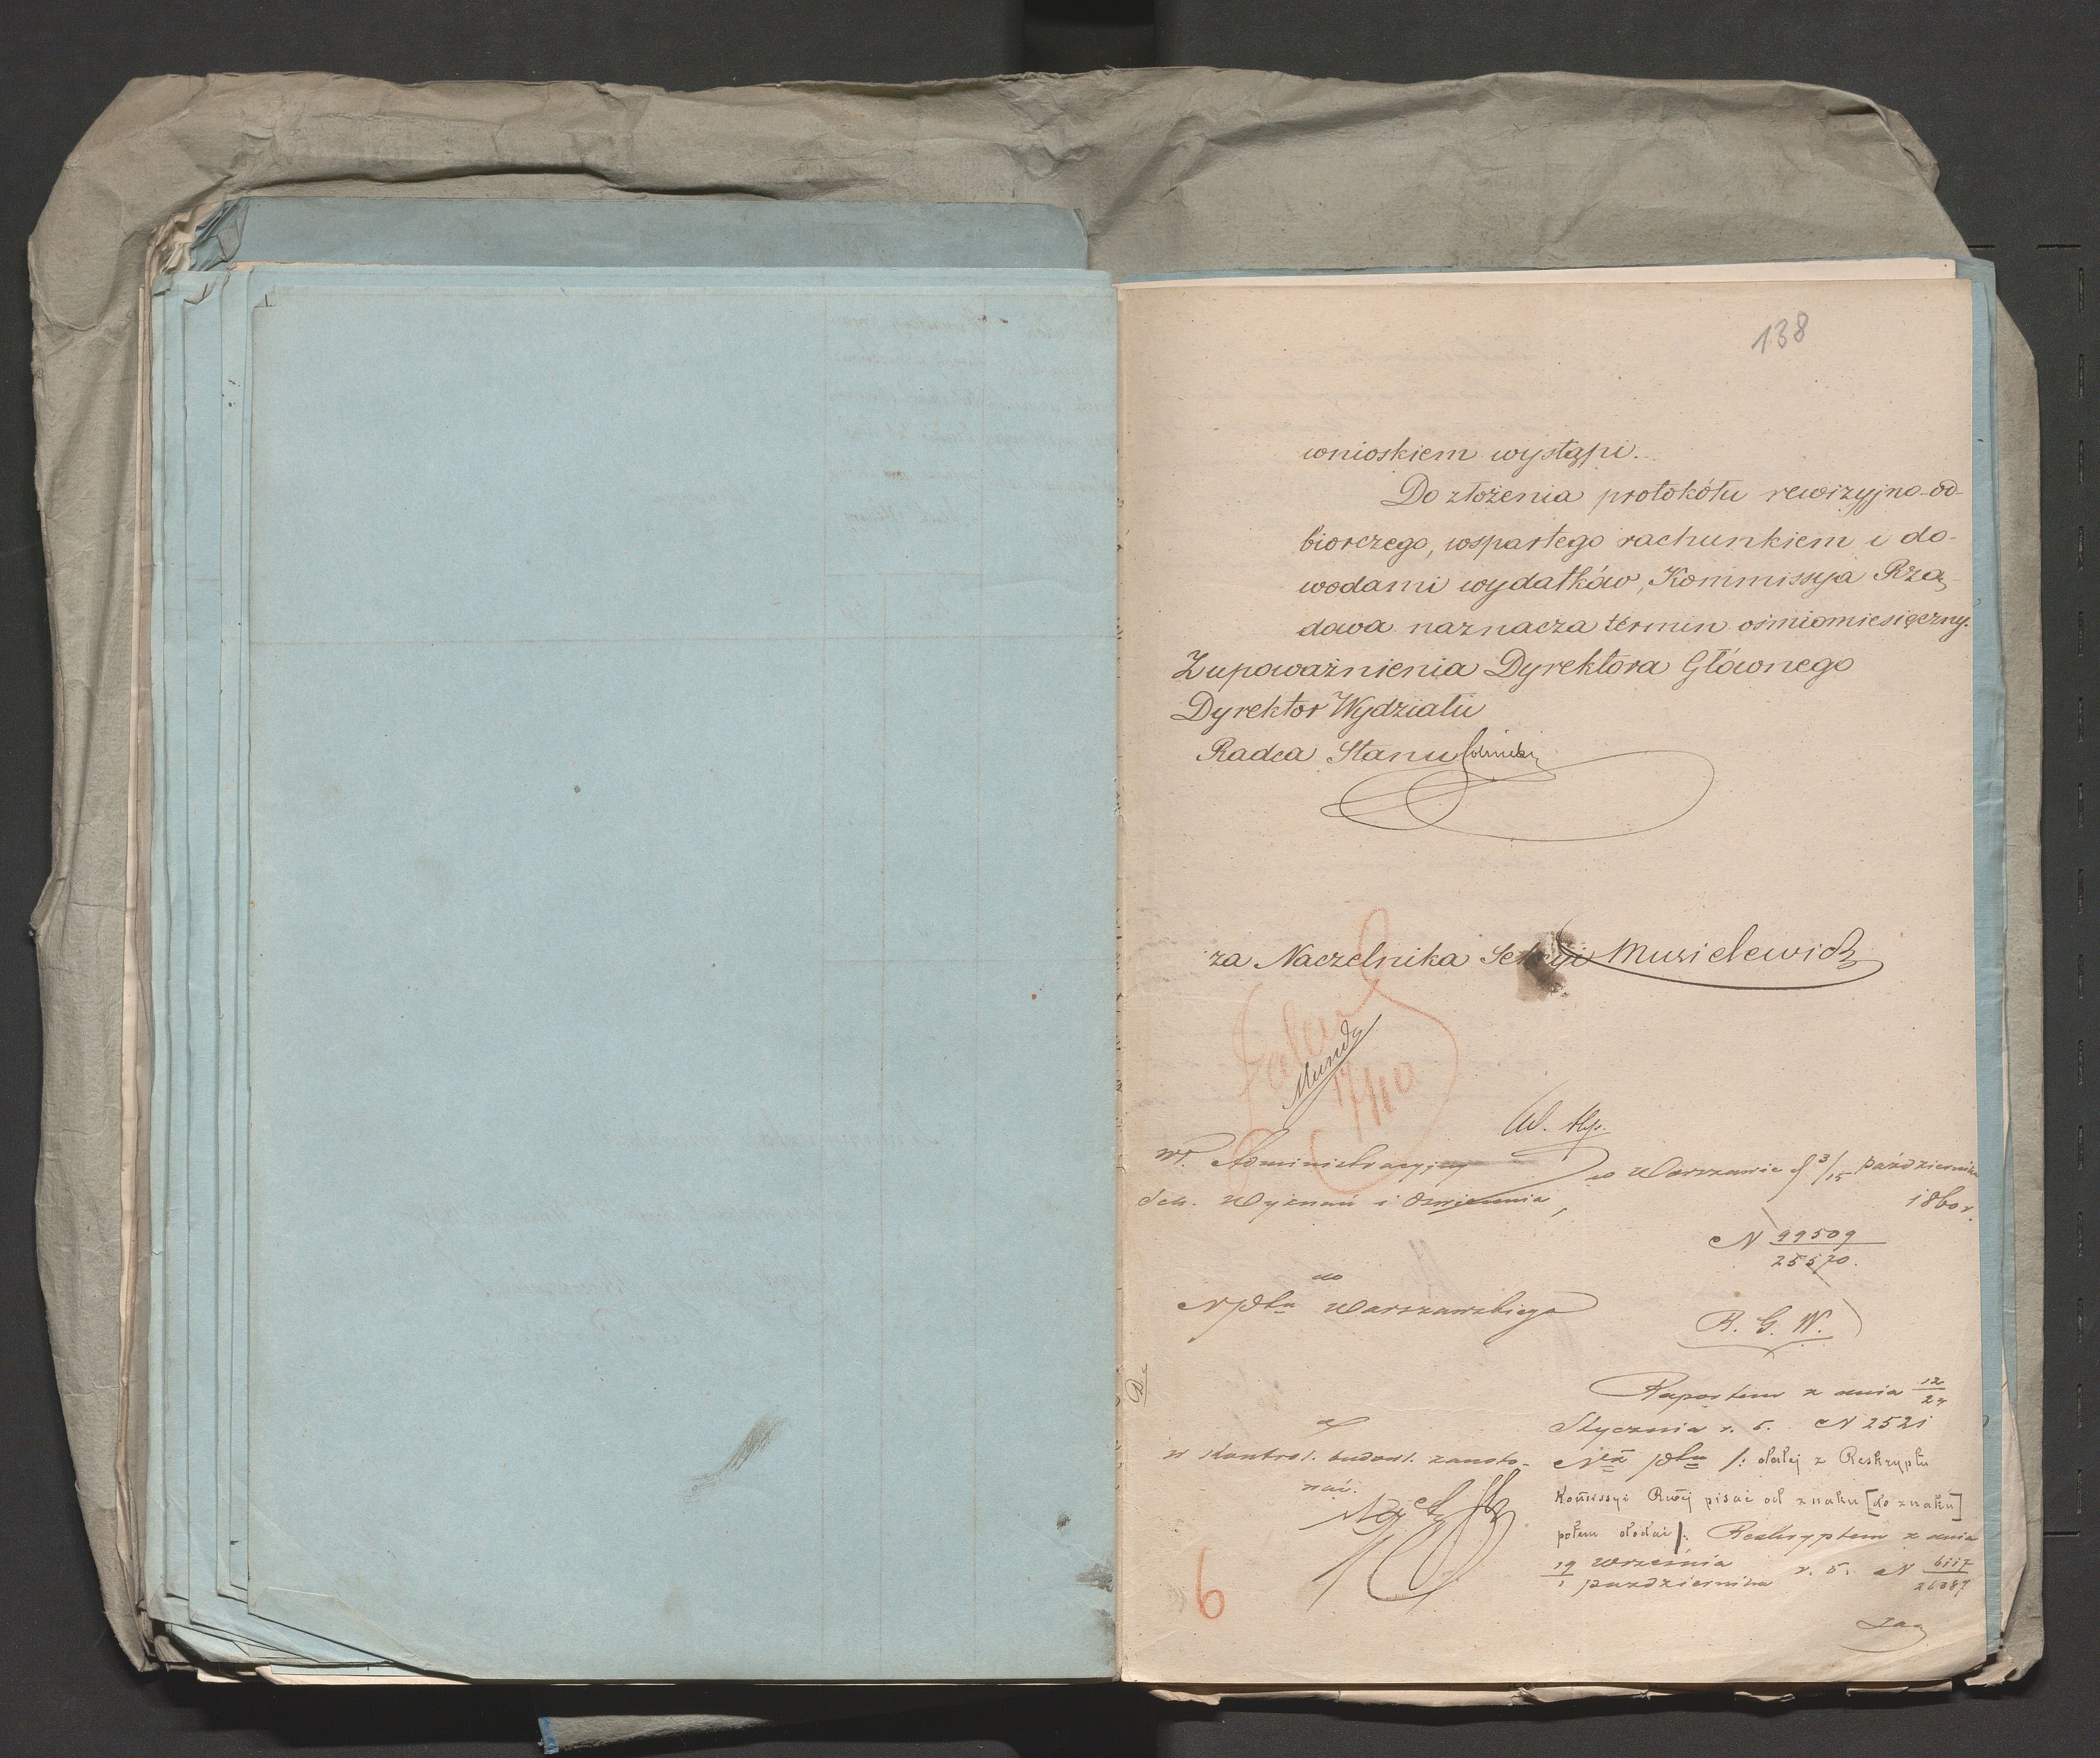 138
wnioskiem wystąpi.
Do złożenia protokółu rewizyjno-od-
biorczego, wspartego rachunkiem i do-
wodami wydatków, Kommissya Rzą-
dowa naznacza termin ośmiomiesięczny.
Z upoważnienia Dyrektora Głównego
Dyrektor Wydziału
Radca Stanu
za Naczelnika Sekcyi Musielewicz
17/10
Wł. Administracyjny
Sek. Wyznań i Oświecenia,
w Warszawie d 3/15 Października
1860 r.
N 99509
25570.
do
N Płu Warszawskiego
R. G. W.
Raportem z dnia 12/24
Stycznia r. b. N 2521
N Ptu /: dalej z Reskryptu
Komissyi Rwéj pisać od znaku [do znaku]
potem dodać /: Reskryptem z dnia
19 września
1 października r. b. N 6117
26087
w Kontrol. budowl. zanoto-
wać.
6